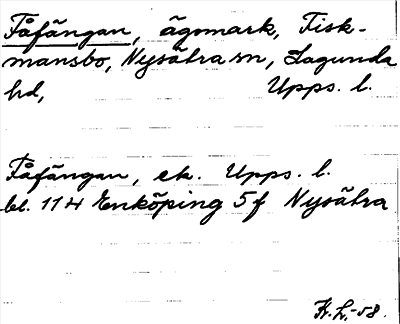 Fåfängan, ägomark, Fisk-
mansbo, Nysätra sn, Lagunda
hd, Upps. l.
Fåfängan, ek. Upps. l.
bl. 114 Enköping 5f Nysätra
H.L.-58.